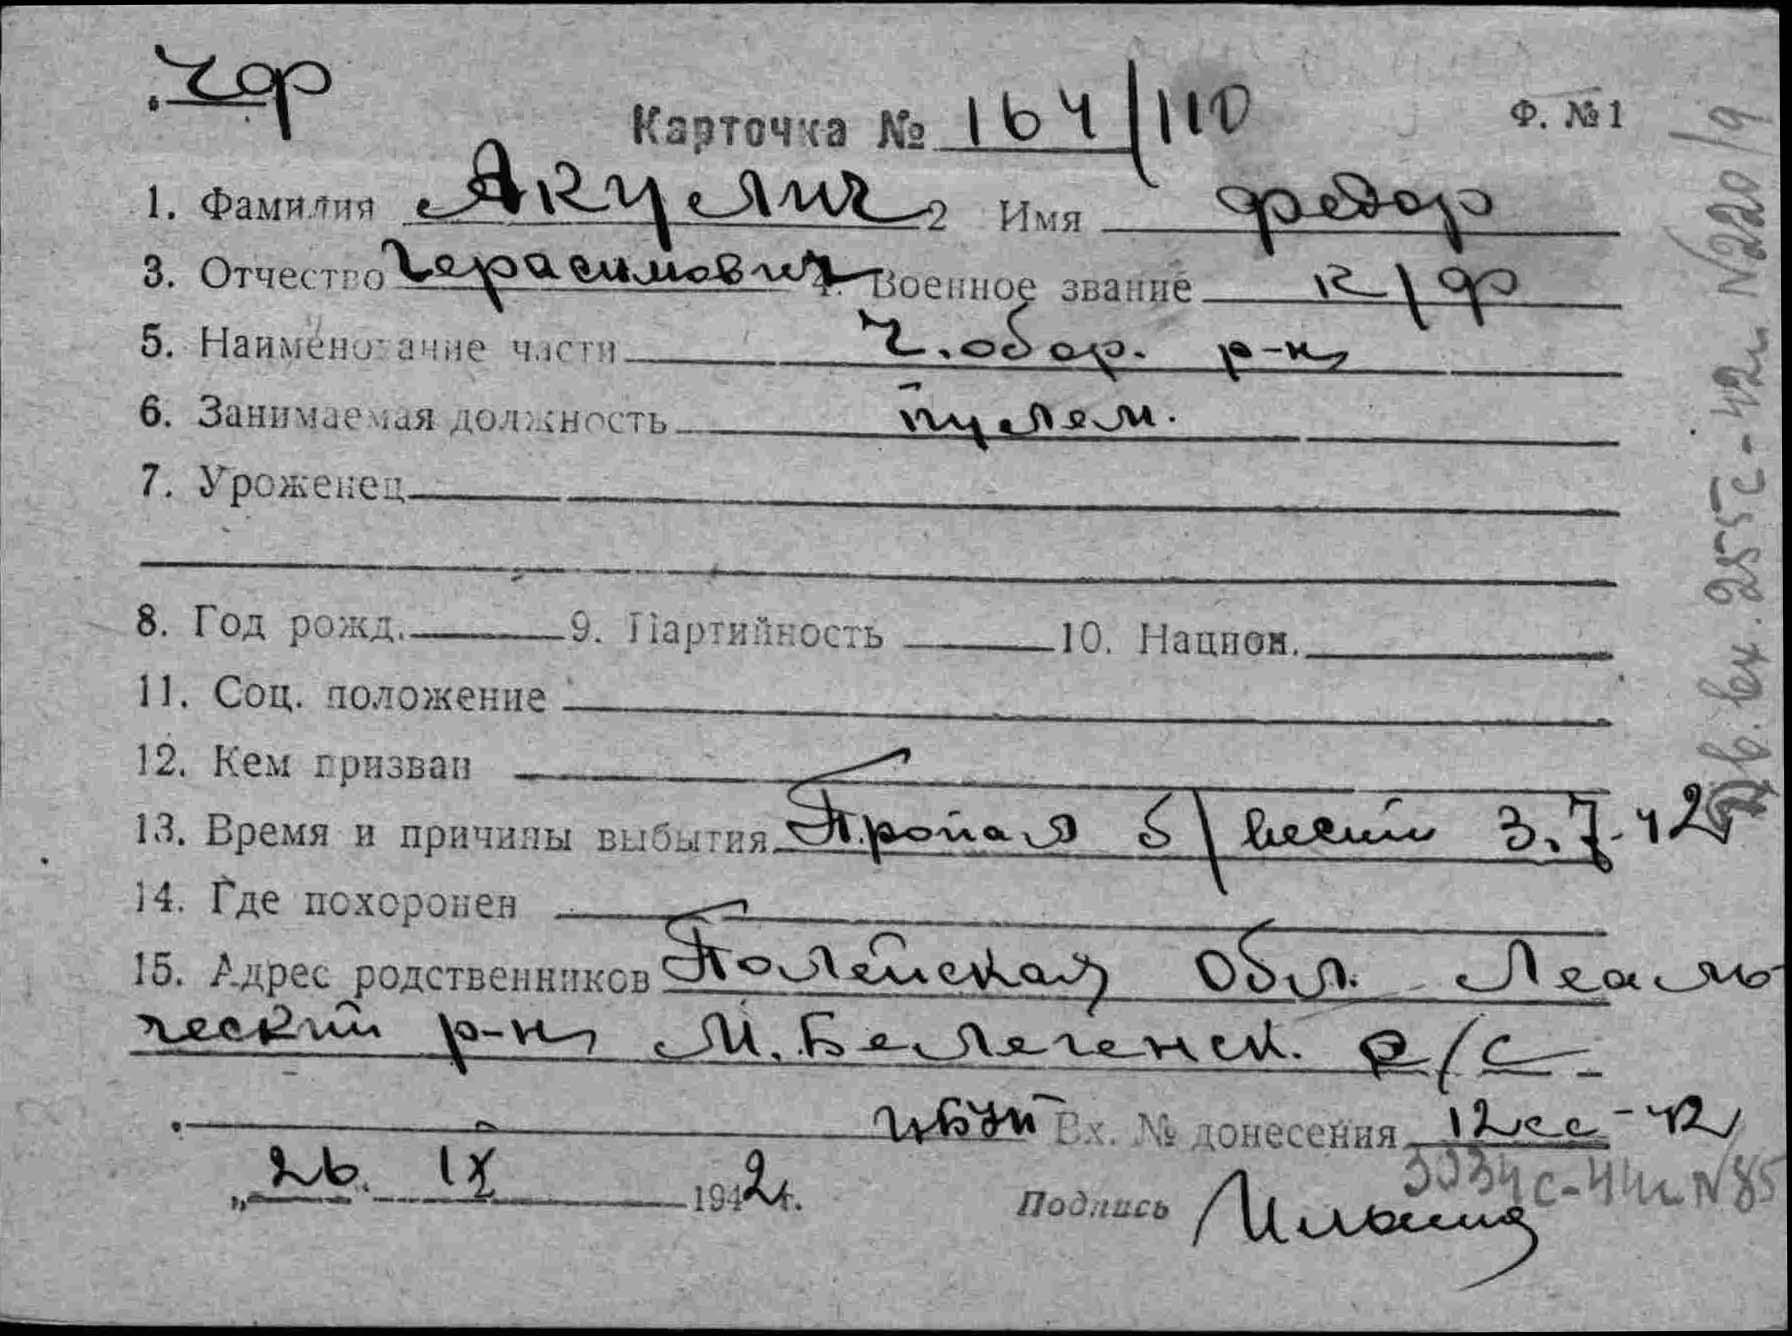 чф
Карточка № 164/110 Ф. № 1
1. Фамилия Акулич 2 Имя Федор
3. Отчество Герасимович 4. Военное звание к/ф
5. Наименование части Ч. обор. р-н
6. Занимаемая должность пулем.
7. Уроженец
8. Год рожд. 9. Партийность 10. Национ.
11. Соц. положение
12. Кем призван
13. Время и причины выбытия Пропал б/вести 3.7.42
14. Где похоронен
15. Адрес родственников Полейская Обл. Леаль
ческий р-н М. Белегенск. с/с
Вх. № донесения 12сс-42
„26. IX 1942г.
Подпись Ильина
вх. 2555с-42г N220/9